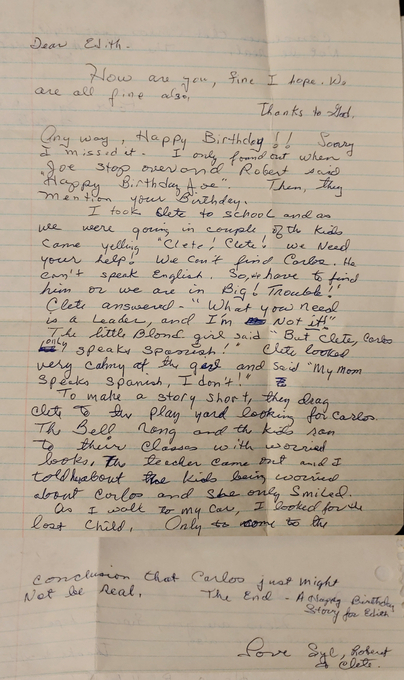 Dear Edith.
How are you, fine I hope. We
are all fine also,
Thanks to God.
Any way, Happy Birthday!! Soary
I missed it. I only found out when
Joe stop over and Robert said
"Happy Birthday Joe". Then, they
mention your Birthday.
I took Clete to school and as
we were going in couple of the kids
came yelling "Clete! Clete! we Need
your help! We can't find Carlos. He
can't speak English. So, have to find
him or we are in Big! Trouble!"
Clete answered - "What you need
is a Leader, and I'm Not it!"
The little Blond girl said "But Clete, Carlos
only speaks Spanish!" Clete looked
very calmy at the girl and said "My Mom
speaks spanish, I don't!"
To make a story short, they drag
Clete to the play yard looking for Carlos.
The Bell rang and the kids ran
to their classes with worried
looks, The teacher came out and I
told her about the kids being worried
about Carlos and she only smiled.
As I walk to my car, I looked for the
lost child, Only to come to the
conclusion that Carlos just might
Not be Real. The End - A Happy Birthday
Story for Edith
Love Syl, Robert
& Clete.